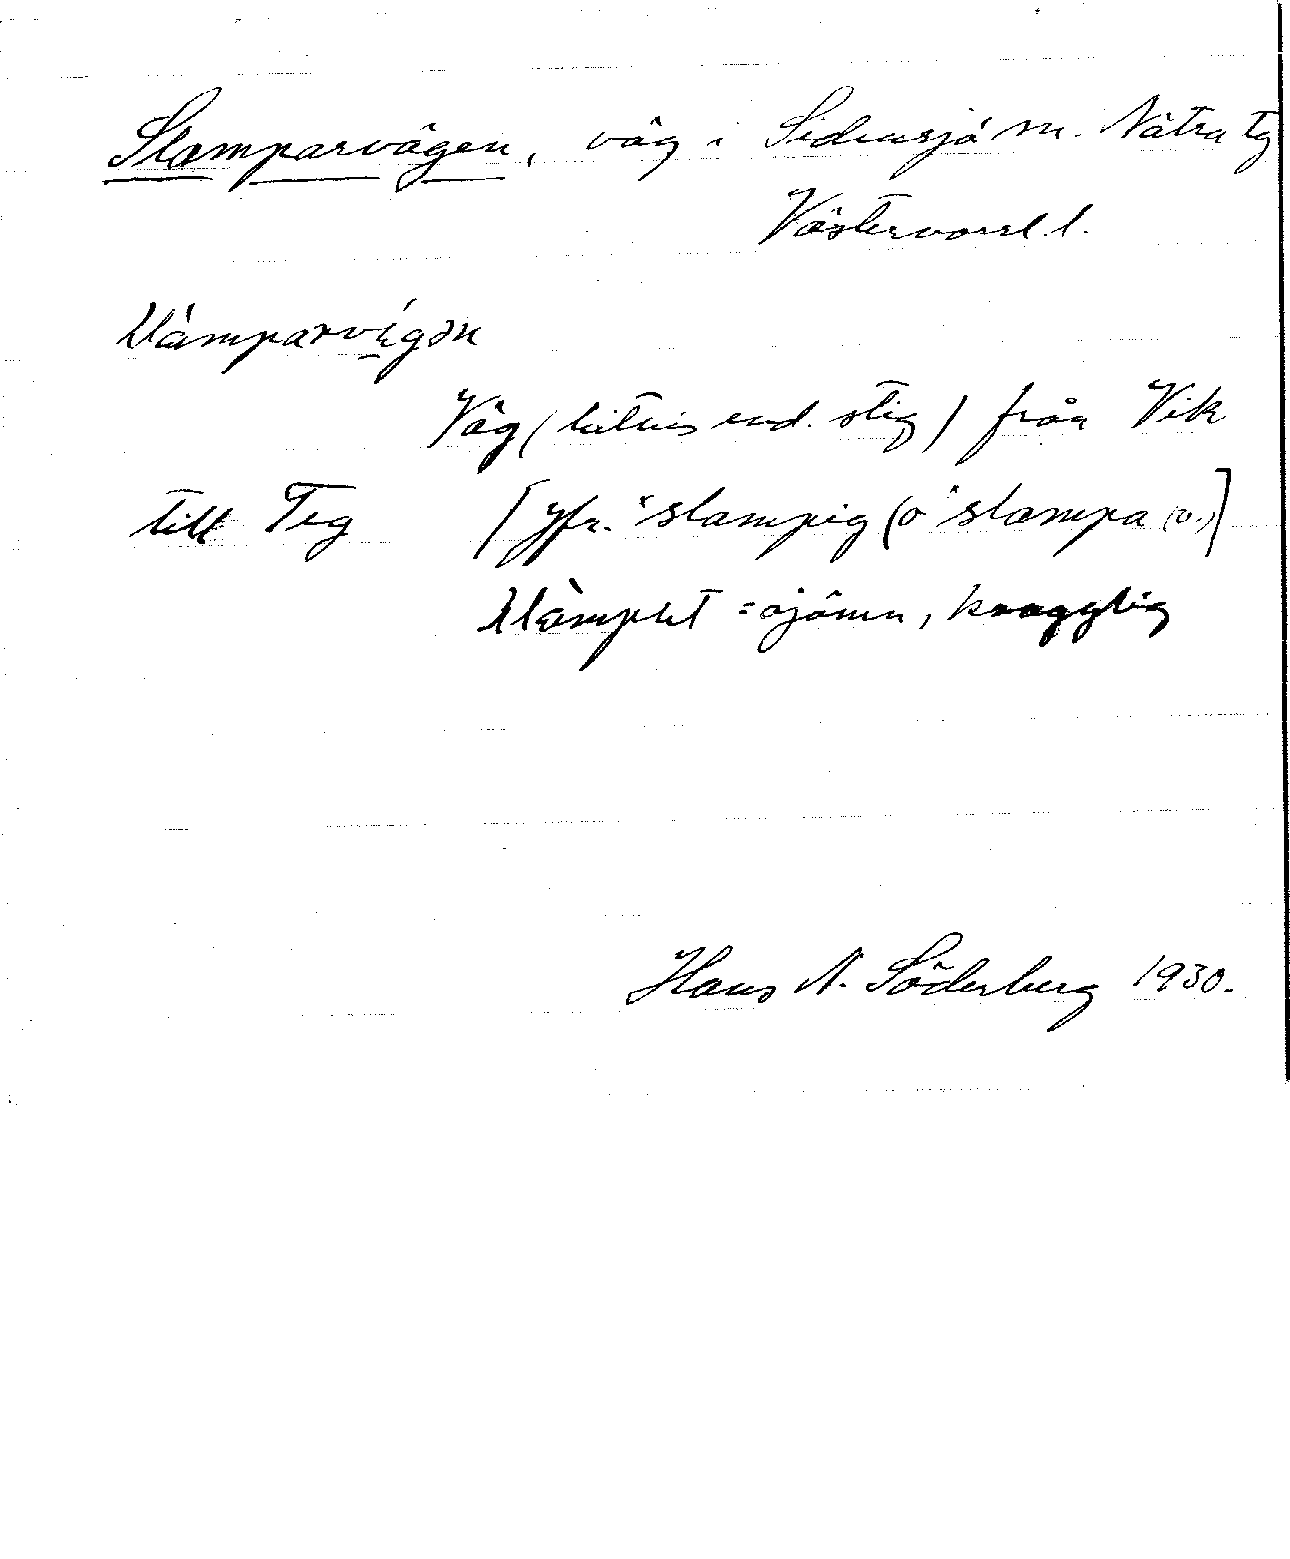 Slamparvägen, väg i Sidensjö sn. Nätra tg
Västernorrl. l.
Väg (bitvis end. stig) från Vik
till Teg [Jfr. "slampig (o "slampa (v.)]
= ojämn, knagglig
Hans N. Söderberg 1930.